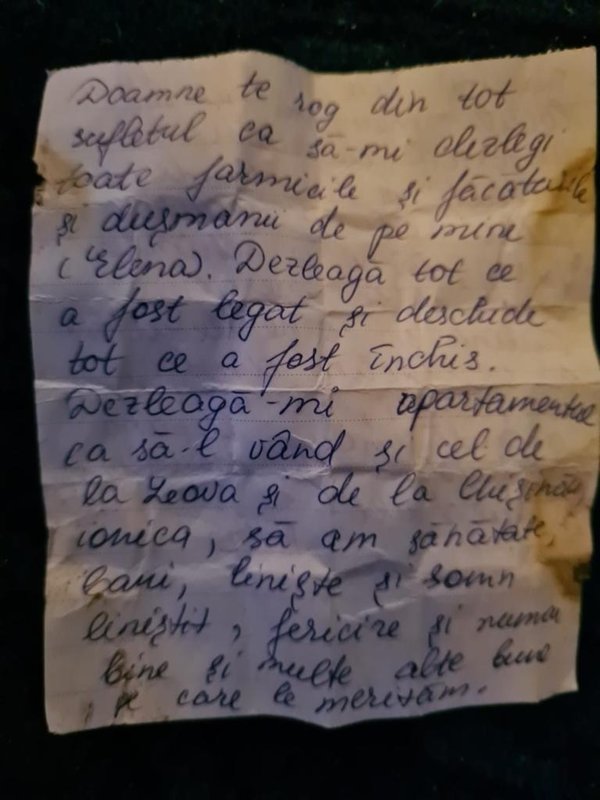 Doamne te rog din tot
sufletul ca să-mi dezlegi
toate farmicile și făcăturile
și dușmanii de pe mine
(Elena). Dezleagă tot ce
a fost legat și deschide
tot ce a fost închis.
Dezleagă-mi apartamentul
ca să-l vând și cel de
la Leova și de la Chișinău
ionica, să am sănătate,
bani, liniște și somn
liniștit, fericire și numai
bine și multe alte bune
pe care le merităm.